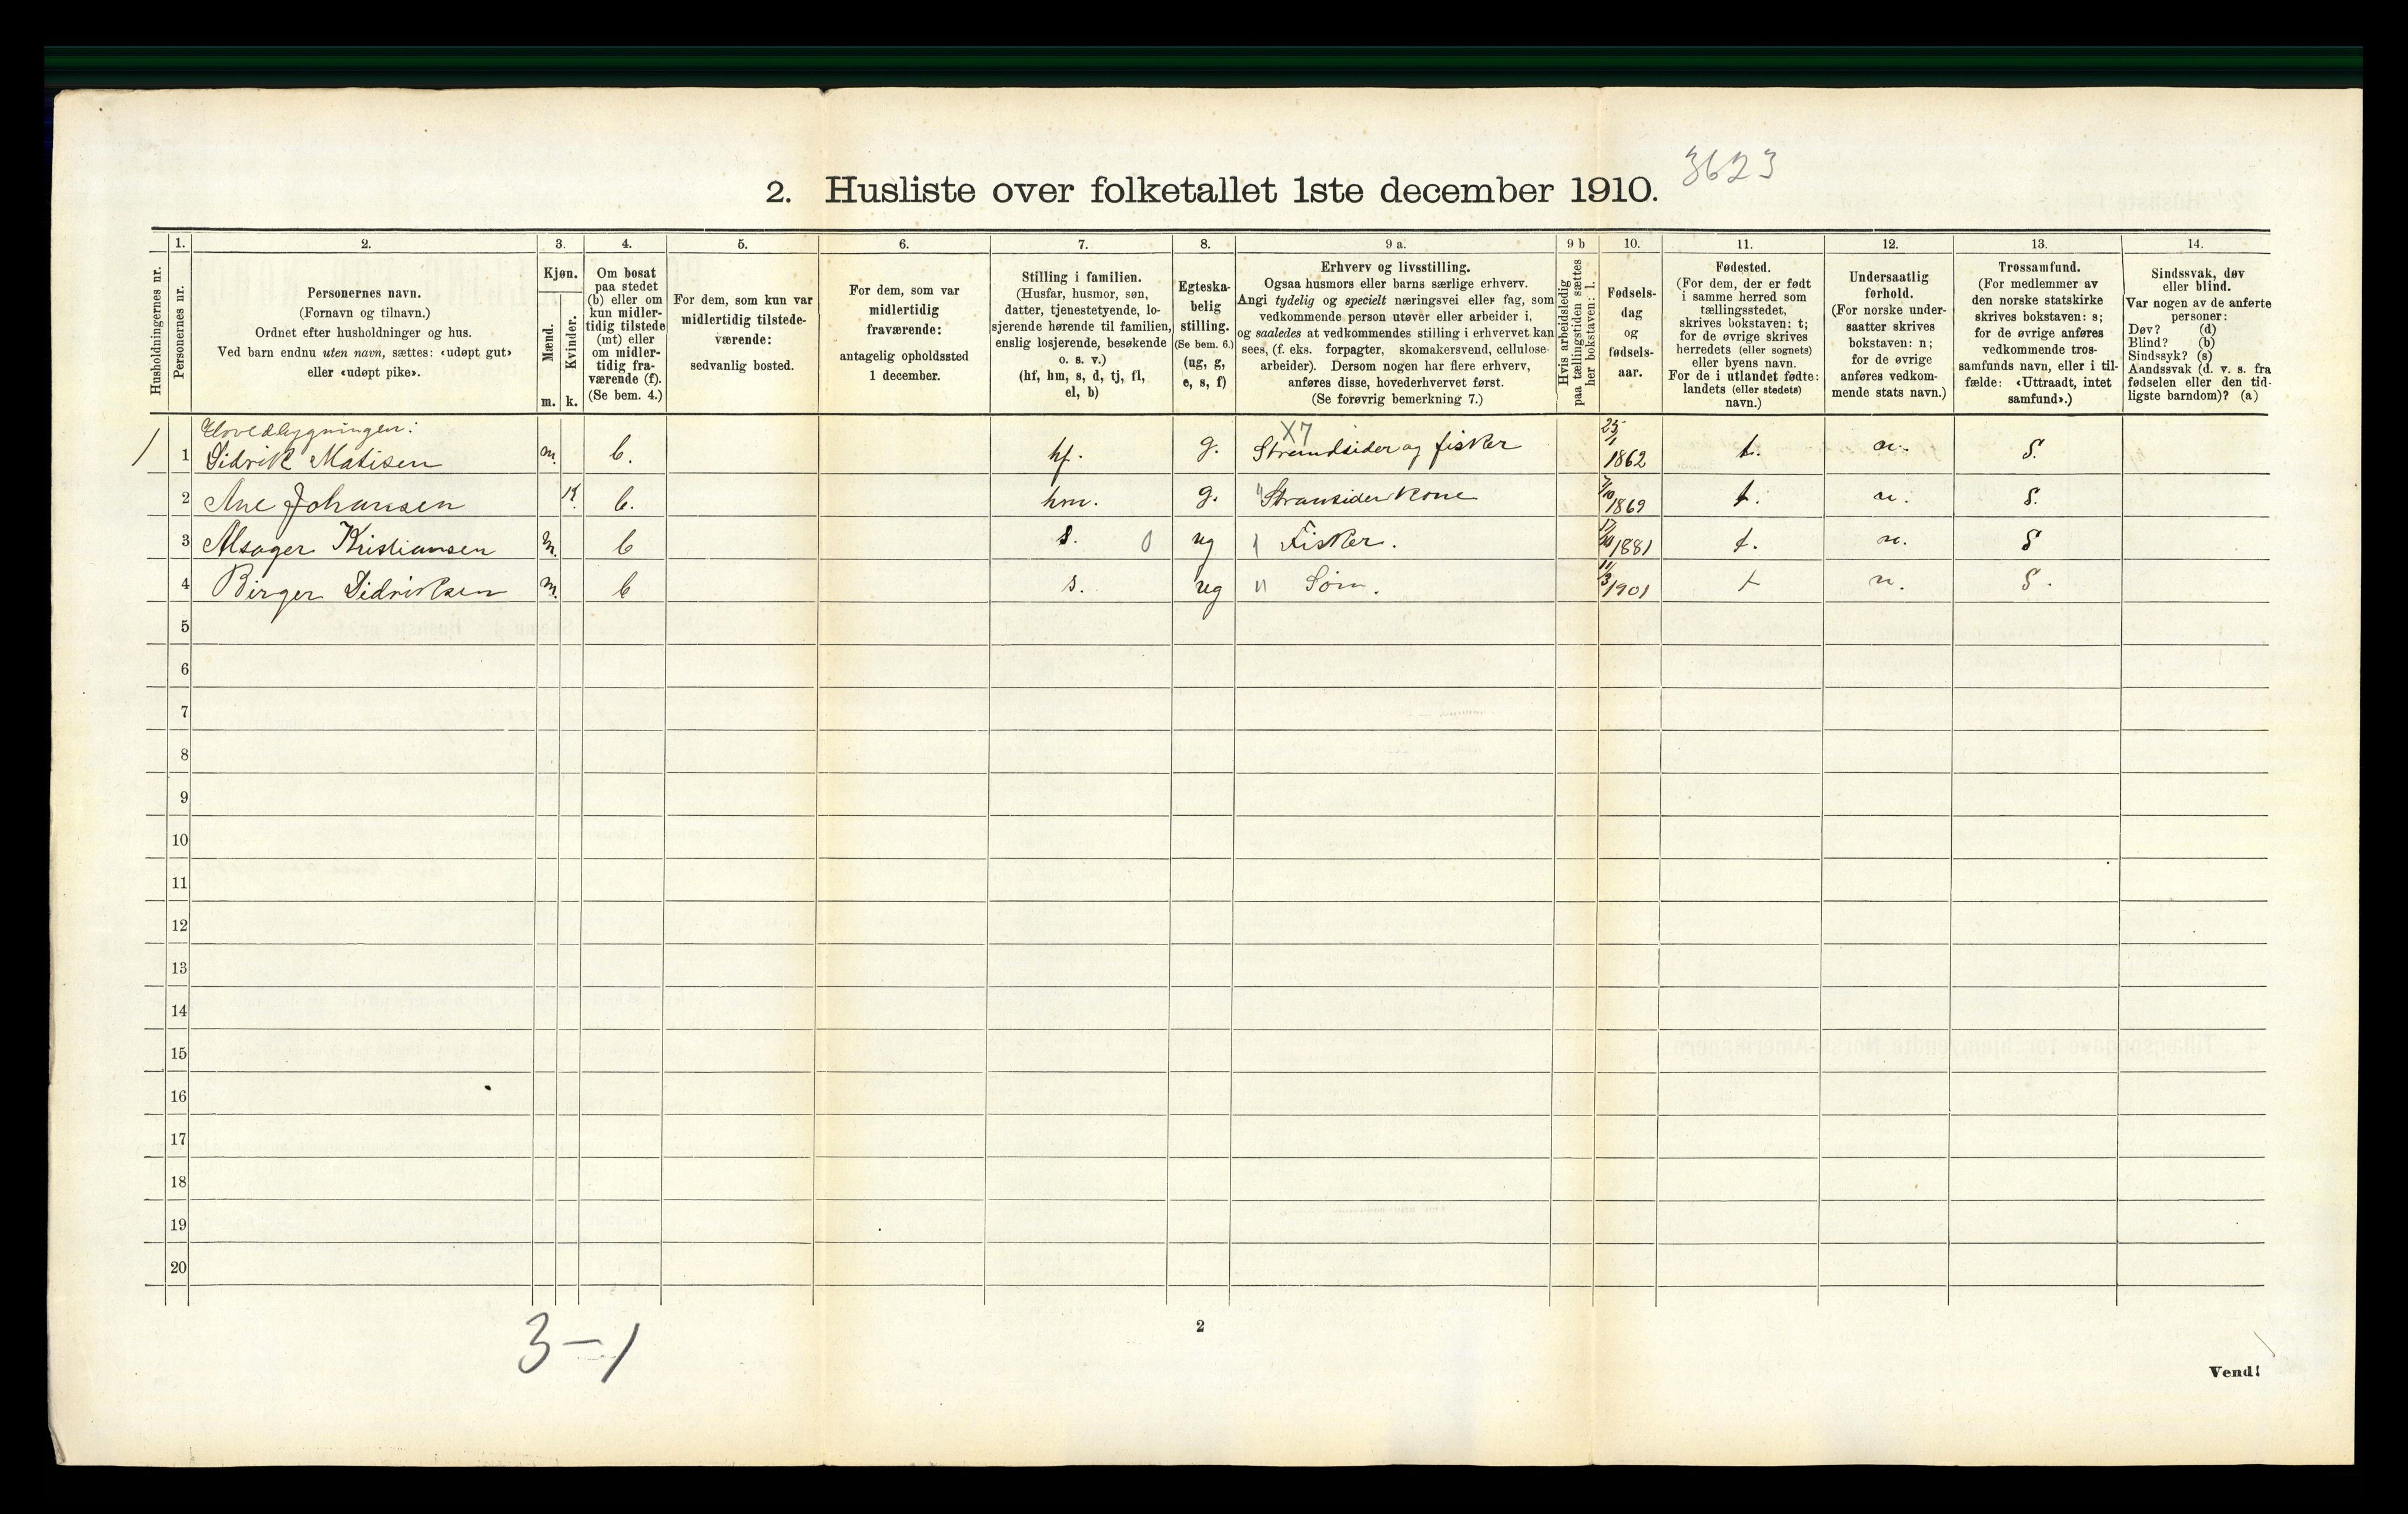 3623
2. Husliste over folketallet 1ste december 1910.
Husholdningernes nr.
1. Personernes nr.
2. Personernes navn.
(Fornavn og tilnavn.)
Ordnet efter husholdninger og hus.
Ved barn endnu uten navn, sættes: «udøpt gut»
eller «udøpt pike».
3. Kjøn.
Mænd. m.
Kvinder. k.
4. Om bosat
paa stedet
(b) eller om
kun midler-
tidig tilstede
(mt) eller
om midler-
tidig fra-
værende (f).
(Se bem. 4.)
5. For dem, som kun var
midlertidig tilstede-
værende:
sedvanlig bosted.
6. For dem, som var
midlertidig
fraværende:
antagelig opholdssted
1 december.
7. Stilling i familien.
(Husfar, husmor, søn,
datter, tjenestetyende, lo-
sjerende hørende til familien,
enslig losjerende, besøkende
o. s. v.)
(hf, hm, s, d, tj, fl,
el, b)
8. Egteska-
belig
stilling.
(Se bem. 6.)
(ug, g,
e, s, f)
9 a. Erhverv og livsstilling.
Ogsaa husmors eller barns særlige erhverv.
Angi tydelig og specielt næringsvei eller fag, som
vedkommende person utøver eller arbeider i,
og saaledes at vedkommendes stilling i erhvervet kan
sees, (f. eks. forpagter, skomakersvend, cellulose-
arbeider). Dersom nogen har flere erhverv,
anføres disse, hovederhvervet først.
(Se forøvrig bemerkning 7.)
9 b Hvis arbeidsledig
paa tællingstiden sættes
her bokstaven: l.
10. Fødsels-
dag
og
fødsels-
aar.
11. Fødested.
(For dem, der er født
i samme herred som
tællingsstedet,
skrives bokstaven: t;
for de øvrige skrives
herredets (eller sognets)
eller byens navn.
For de i utlandet fødte:
landets (eller stedets)
navn.)
12. Undersaatlig
forhold.
(For norske under-
saatter skrives
bokstaven: n;
for de øvrige
anføres vedkom-
mende stats navn.)
13. Trossamfund.
(For medlemmer av
den norske statskirke
skrives bokstaven: s;
for de øvrige anføres
vedkommende tros-
samfunds navn, eller i til-
fælde: «Uttraadt, intet
samfund».)
14. Sindssvak, døv
eller blind.
Var nogen av de anførte
personer:
Døv? (d)
Blind? (b)
Sindssyk? (s)
Aandssvak (d. v. s. fra
fødselen eller den tid-
ligste barndom)? (a)
Hovedbygningen: X7
1 1 Didrik Matisen m. b. hf. g. Strandsider og fisker 25/1 1862 t. n. S.
2 Ane Johansen K. b. hm. g. " Stransider kone 7/10 1869 t. n. S.
3 Alsager Kristiansen m. b s. 0 ug Fisker. 17/10 1881 t. n. S
4 Birger Didriksen m. b s. ug " Søn. 11/3 1901 t n. S.
5
6
7
8
9
10
11
12
13
14
15
16
17
18
19
20
3–1
2
Vend!